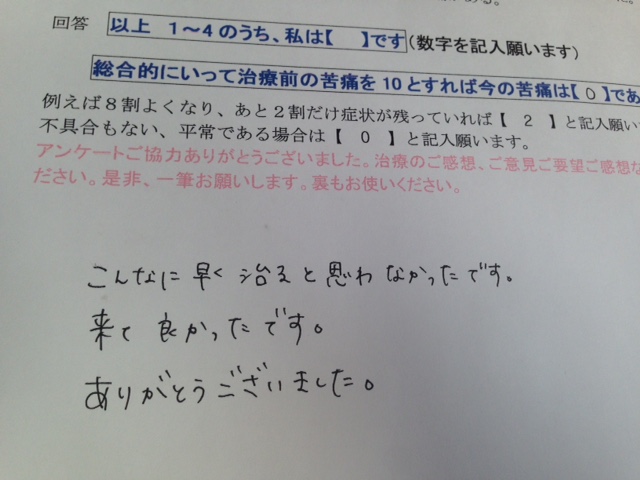 回答 以上 1~4のうち、私は【 】です(数字を記入願います)
総合的にいって治療前の苦痛を10とすれば今の苦痛は【 0 】であ
例えば8割よくなり、あと2割だけ症状が残っていれば【 2 】と記入願い
不具合もない、平常である場合は【 0 】と記入願います。
アンケートご協力ありがとうございました。治療のご感想、ご意見ご要望ご感想な
ださい。是非、一筆お願いします。裏もお使いください。
こんなに早く治ると思わなかったです。
来て良かったです。
ありがとうございました。